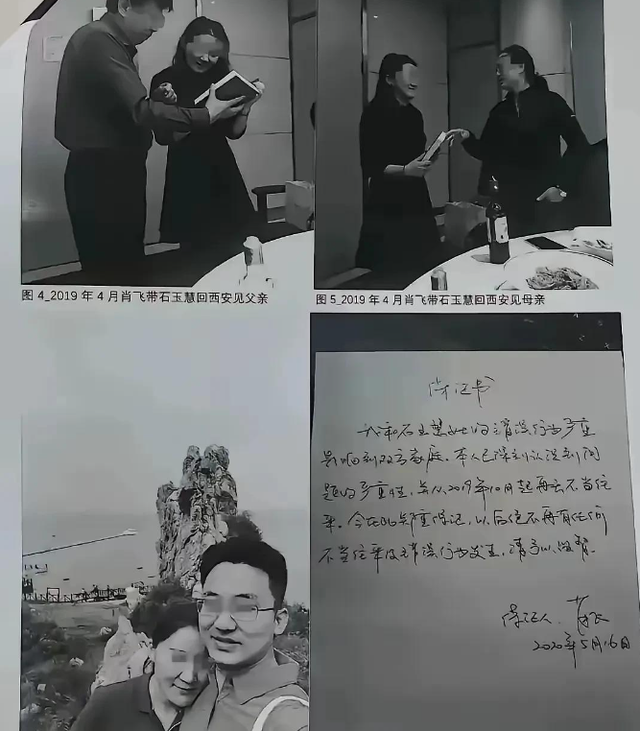 图 4_2019 年 4 月肖飞带石玉慧回西安见父亲
图 5_2019 年 4 月肖飞带石玉慧回西安见母亲
保证书
我和石玉慧女士的错误行为严重
影响到双方家庭。本人已深刻认识到问
题的严重性，并从2019年10月起再无不当往
来。今在此郑重保证，以后绝不再有任何
不当往来及错误行为发生，请予以监督。
保证人：肖飞
2020年5月16日